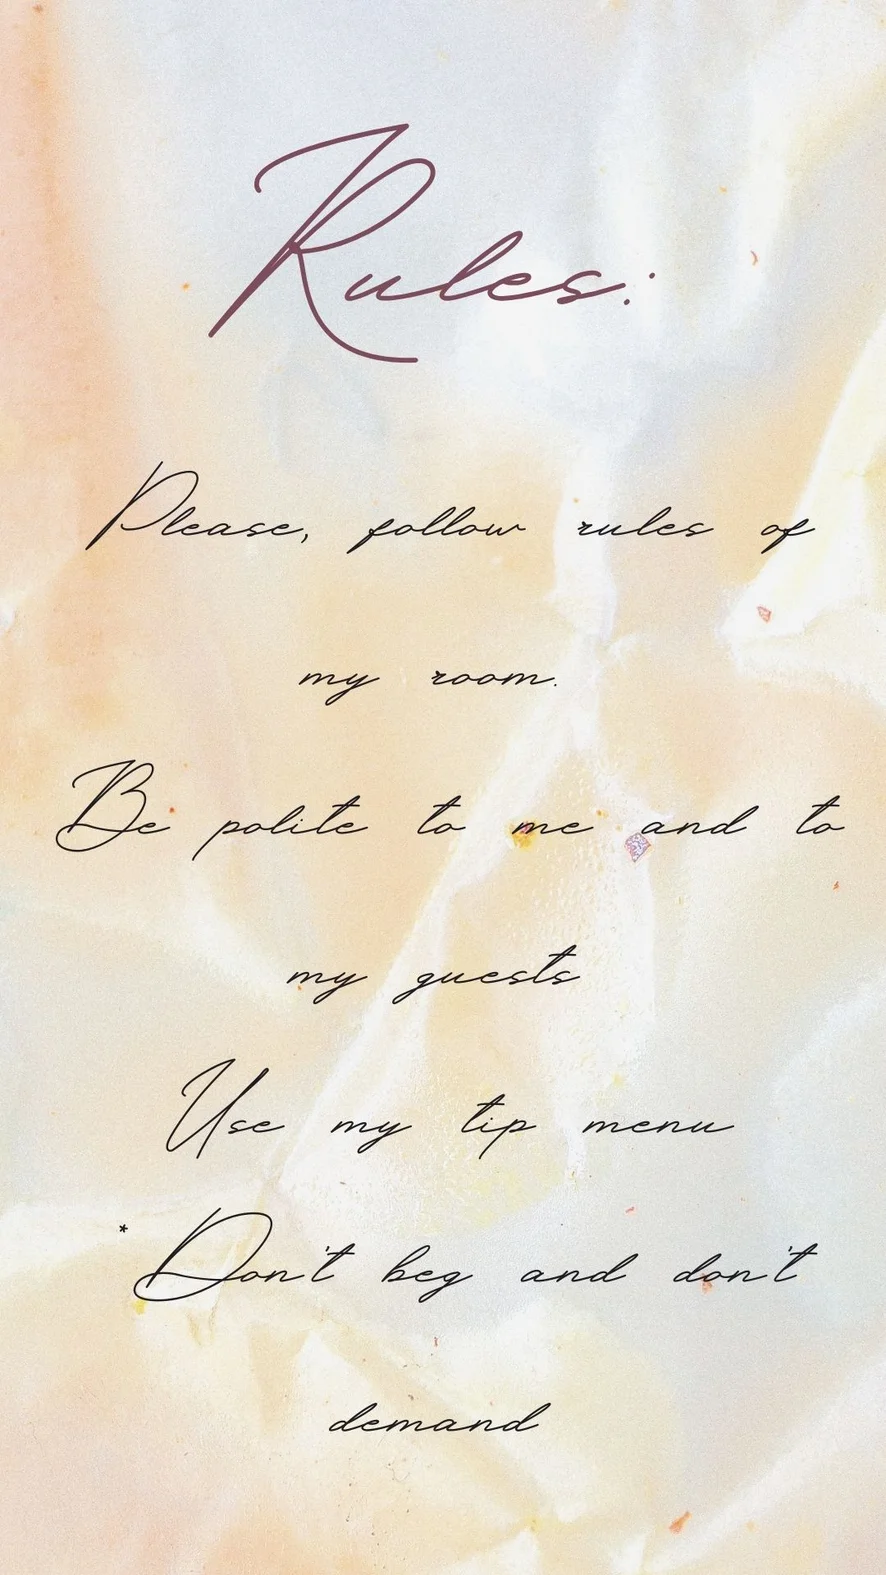 Rules:
Please, follow rules of
my room.
Be polite to me and to
my guests
Use my tip menu
* Don't beg and don't
demand